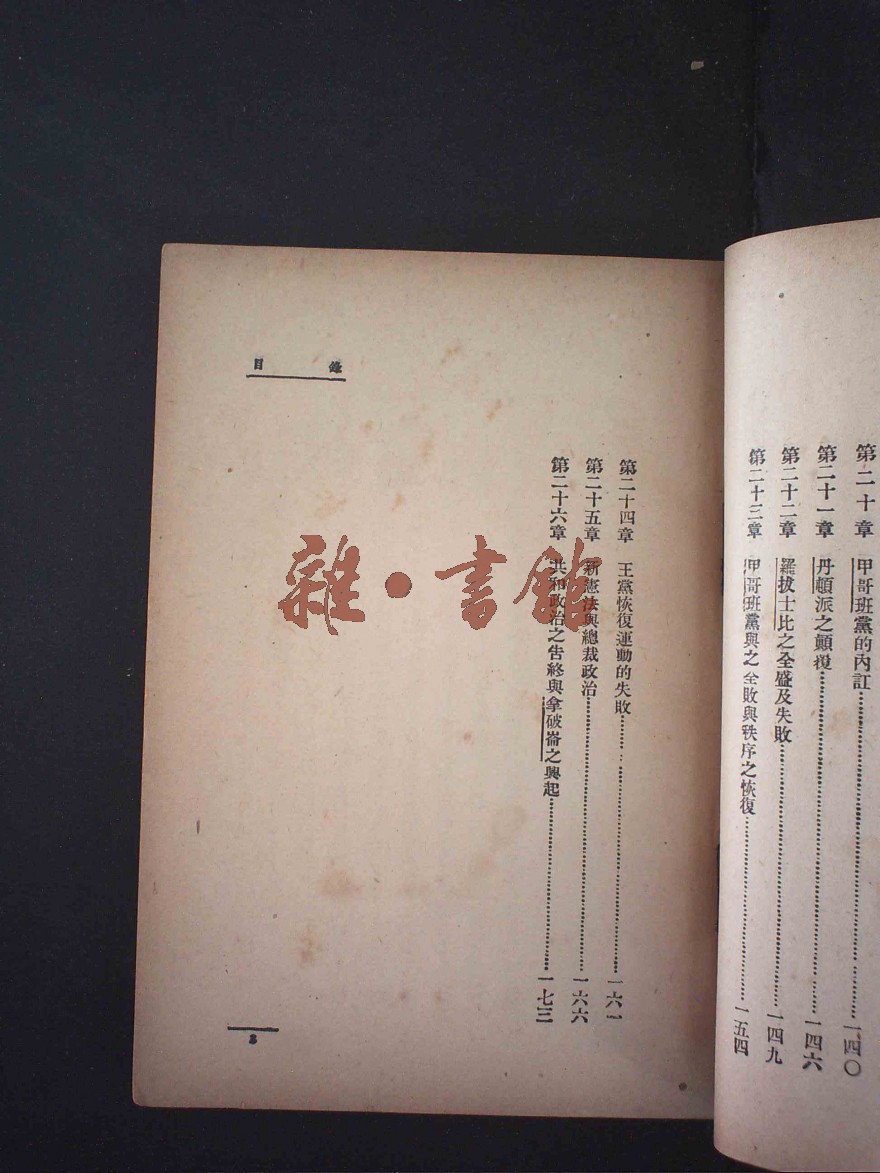 第二十章 甲哥班黨的內訌……一四〇
第二十一章 丹頓派之顛覆……一四六
第二十二章 羅拔士比之全盛及失敗……一四九
第二十三章 甲哥班黨與之全敗與秩序之恢復……一五四
目錄
第二十四章 王黨恢復運動的失敗……一六一
第二十五章 新憲法與總裁政治……一六六
第二十六章 共和政治之告終與拿破崙之興起……一七三
3
雜·書館